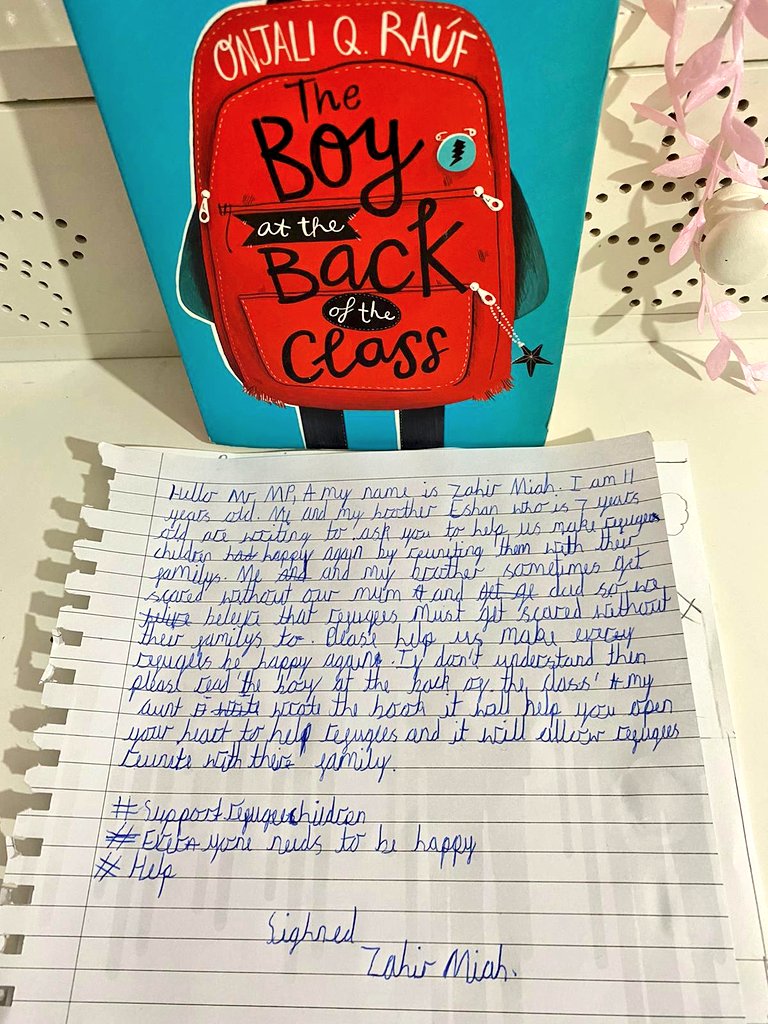 ONJALI Q. RAÚF
The
Boy
at the
Back
of the
Class
Hello Mr MP, my name is Zahir Miah. I am 11
years old. Me and my brother Eshan who is 7 years
old are writing to ask you to help us make refugee
children happy again by reuniting them with their
familys. Me and my brother sometimes get
scared without our mum and dad so we
beleve that refugees must get scared without
their familys to. Please help us make every
refugees be happy again. If don't understand then
please read 'the boy at the back of the class' my
aunt wrote the book it will help you open
your heart to help refugees and it will allow refugees
reunite with their family.
#Support refugee children
#Everyone needs to be happy
#Help
Sighned
Zahir Miah.